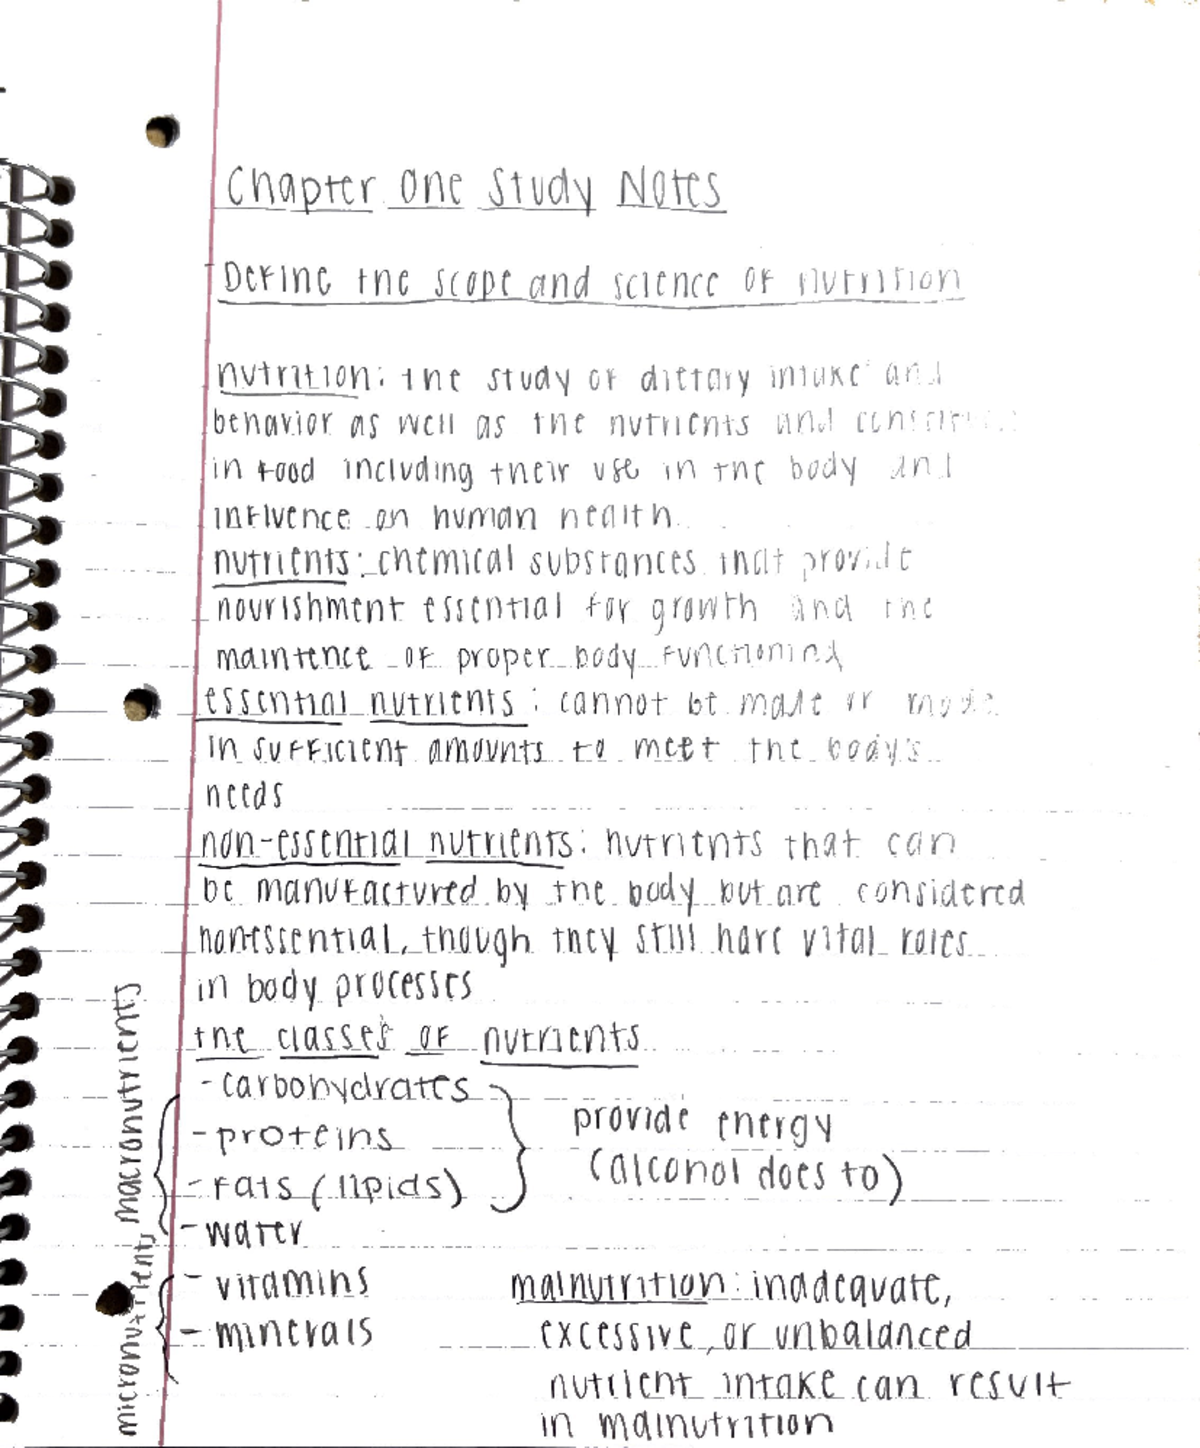 Chapter One Study Notes
Define the scope and science of nutrition
nutrition: the study of dietary intake and
behavior as well as the nutrients and
in food including their use in the body and
influence on human health
nutrients: chemical substances that provide
nourishment essential for growth and the
maintence of proper body functioning
essential nutrients: cannot be made or made
in sufficient amounts to meet the body's
needs
non-essential nutrients: nutrients that can
be manufactured by the body but are considered
nonessential, though they still have vital roles
in body processes
the classes of nutrients
macronutrients
- carbohydrates
- proteins
- fats (lipids)
- water
provide energy
(alcohol does to)
micronutrients
- vitamins
- minerals
malnutrition: inadequate,
excessive, or unbalanced
nutrient intake can result
in malnutrition